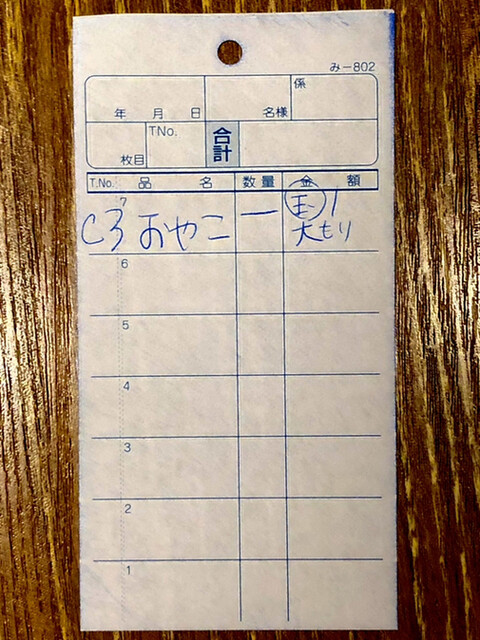 み-802
年 月 日 名様 係
枚目 TNo. 合計
T.No. 品 名 数量 金 額
7
C3 おやこ 一 玉 1
大もり
6
5
4
3
2
1